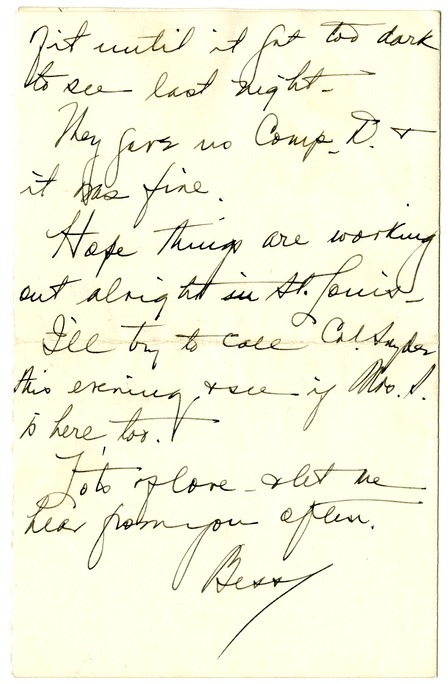 of it until it got too dark
to see last night –
They gave us Comp. D. &
it was fine.
Hope things are working
out alright in St. Louis –
I'll try to call Col. Snyder
this evening & see if Mrs. S.
is here too.
Lots of love – & let me
hear from you often.
Bess